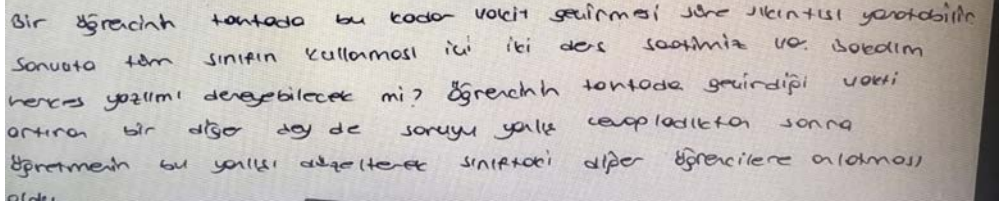 Bir öğrencinin tahtada bu kadar vakit geçirmesi süre sıkıntısı yaratabilir.
Sonuçta tüm sınıfın kullanması için iki ders saatimiz var. Bakalım
herkes yazılımı deneyebilecek mi? Öğrencinin tahtada geçirdiği vakti
artıran bir diğer şey de soruyu yanlış cevapladıktan sonra
öğretmenin bu yanlışı düzelterek sınıftaki diğer öğrencilere anlatması
oldu.